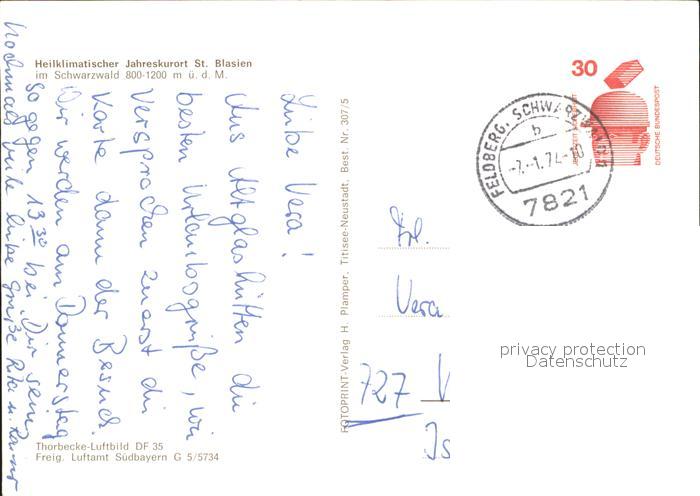 Heilklimatischer Jahreskurort St. Blasien
im Schwarzwald 800-1200 m ü. d. M.
Liebe Vera!
Aus Altglashütten die
besten Urlaubsgrüße, wie
versprochen zuerst die
Karte dann der Besuch.
Wir werden am Donnerstag
so gegen 13 30 bei Dir sein.
Nochmals viele liebe Grüße Rita u.
Thorbecke-Luftbild DF 35
Freig. Luftamt Südbayern G 5/5734
FOTOPRINT-Verlag H. Plamper, Titisee-Neustadt, Best. Nr. 307/5
30
JEDERZEIT SICHERHEIT
DEUTSCHE BUNDESPOST
FELDBERG, SCHWARZWALD
b
7821
Frl.
Vera
727 V
Is
privacy protection
Datenschutz